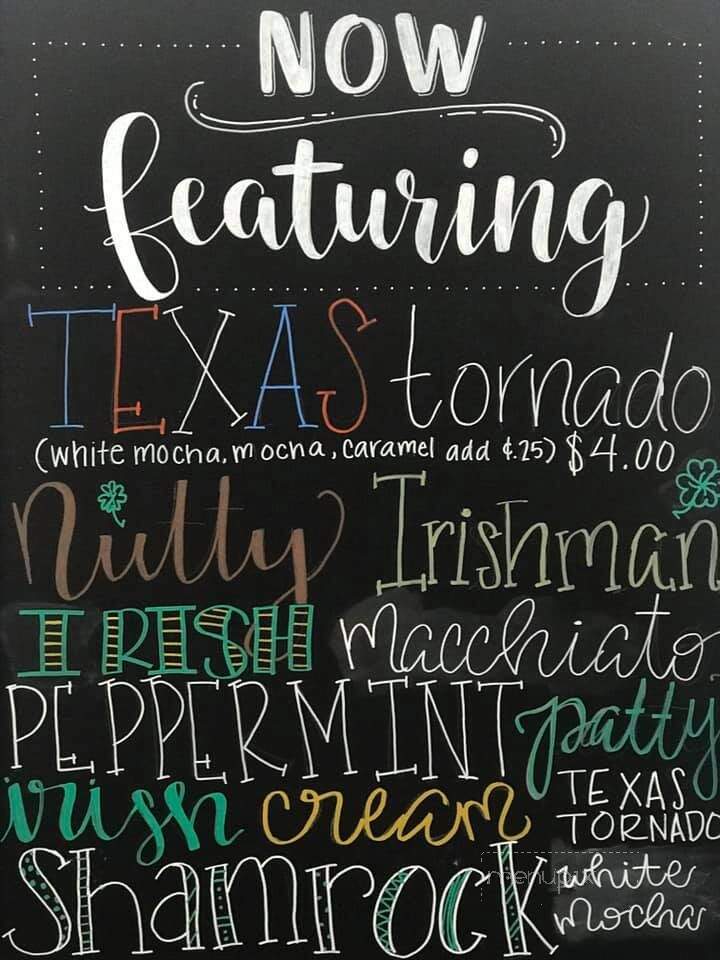 NOW
featuring
TEXAS tornado
(white mocha, mocha, caramel add ¢.25) $4.00
Nutty Irishman
IRISH macchiato
PEPPERMINT patty
irish cream TEXAS TORNADO
Shamrock white mocha
menupix